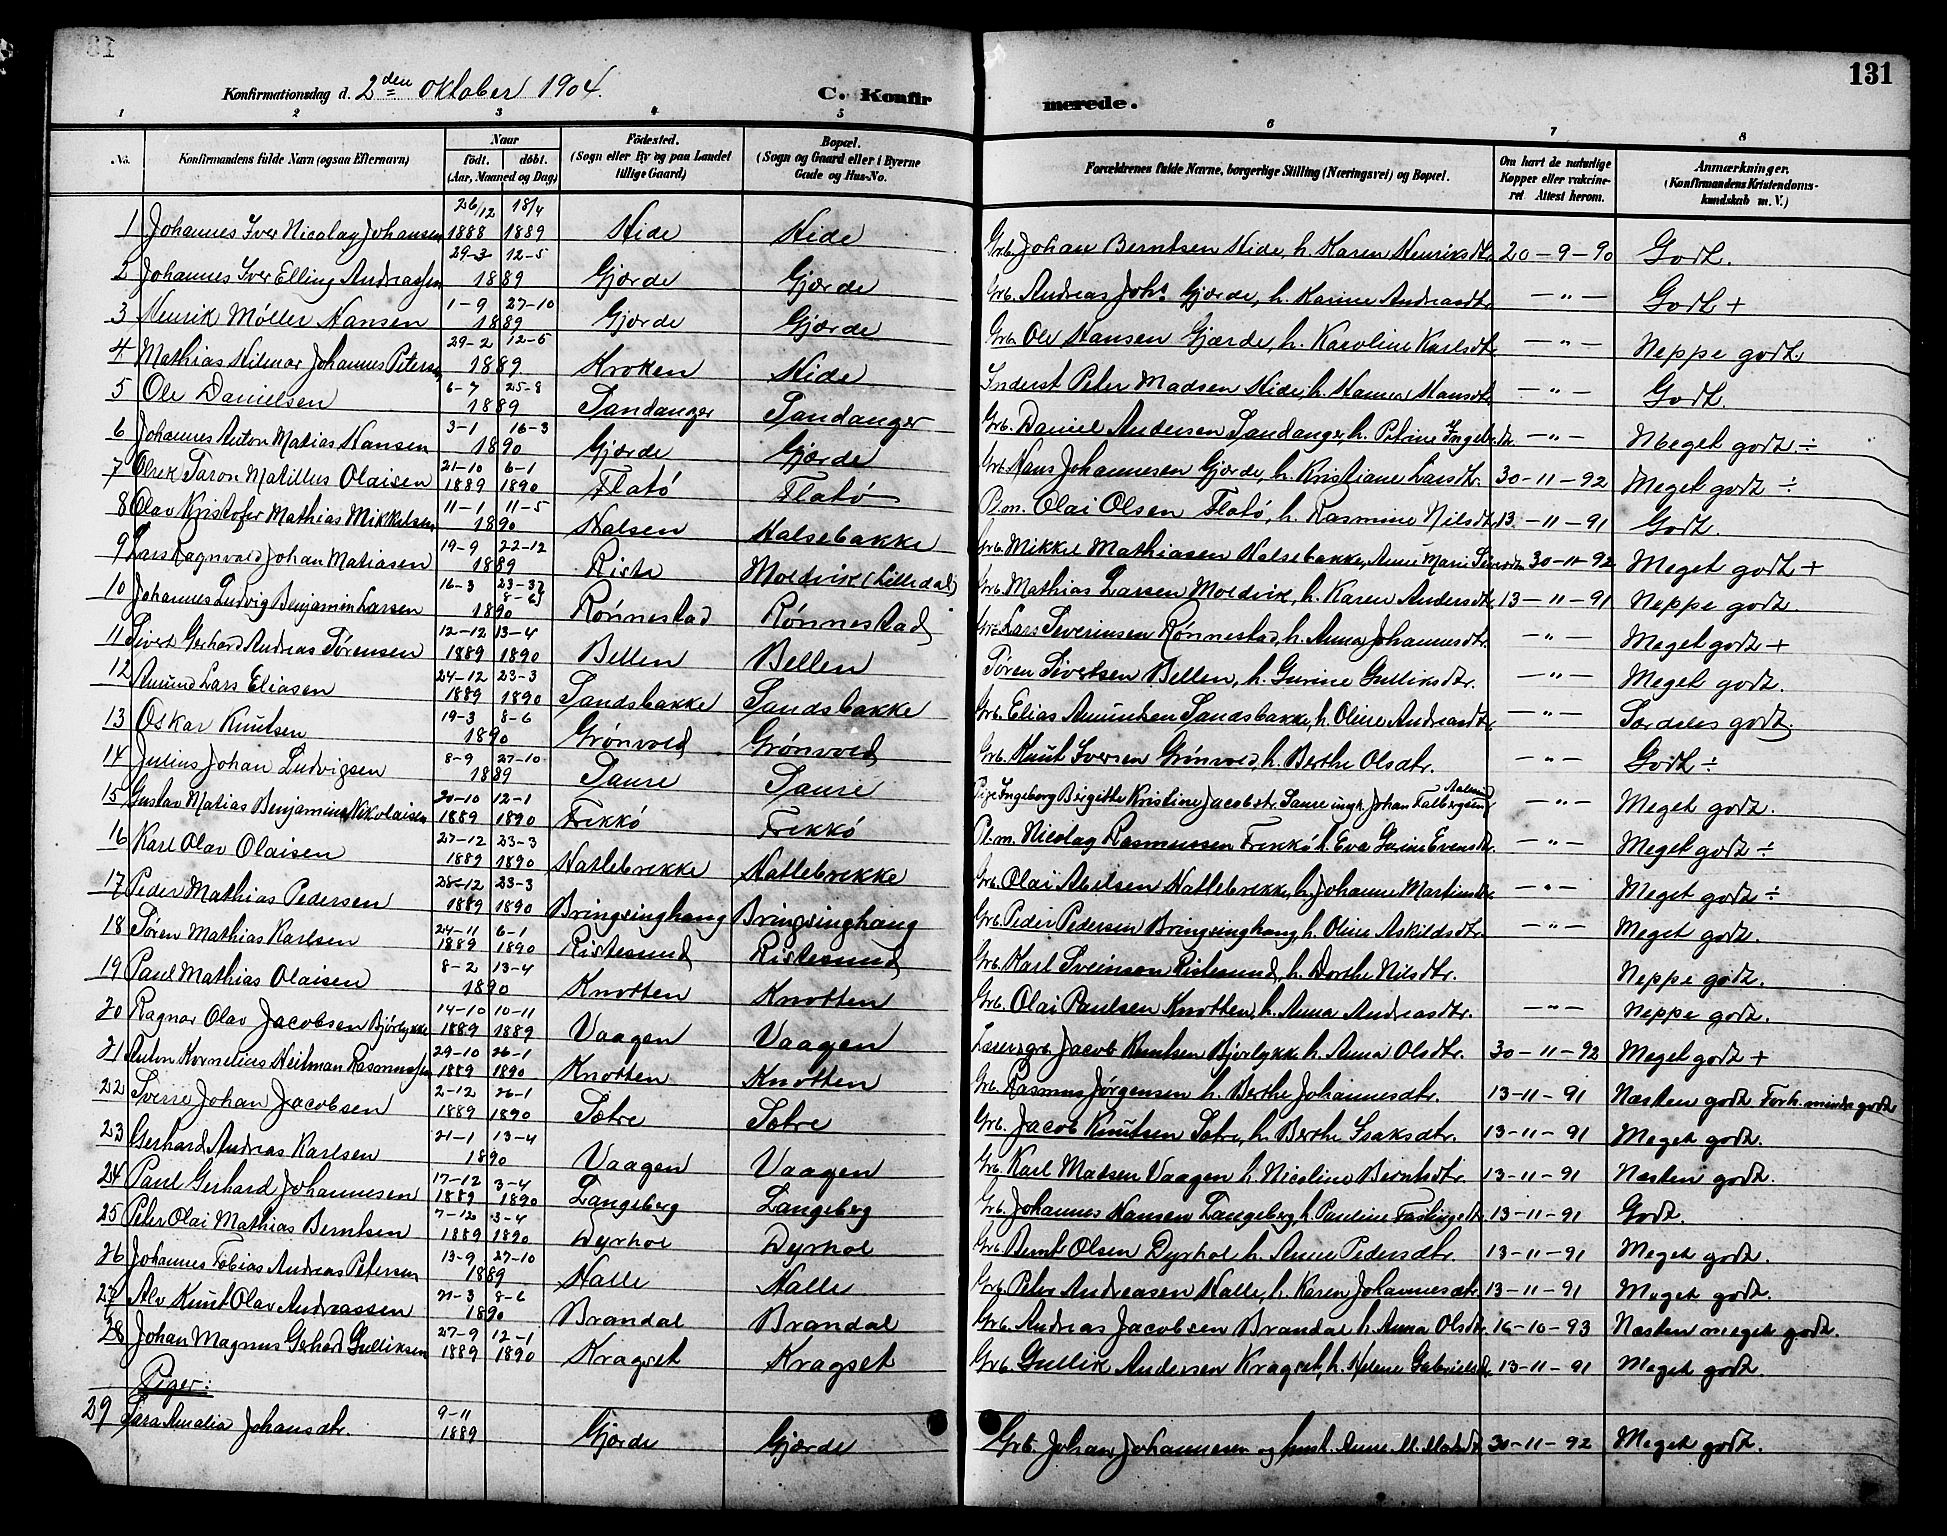 131
Konfirmationsdag d. 2den Oktober 1904.
C. Konfirmerede.
1 2 3 4 5 6 7 8
No. Konfirmandens fulde Navn (ogsaa Efternavn) Naar født. døbt. (Aar, Maaned og Dag) Fødested. (Sogn eller By og paa Landet tillige Gaard) Bopæl. (Sogn og Gaard eller i Byerne Gade og Hus-No. Forældrenes fulde Navne, borgerlige Stilling (Næringsvei) og Bopæl. Om havt de naturlige Kopper eller vakcineret Attest herom. Anmærkninger. (Konfirmandens Kristendomskundskab m. V.)
1 Johannes Iver Nicolay Johansen 26/12 1888 18/4 1889 Hide Hide Grb. Johan Berntsen Hide, h. Karen Henriksdtr. 20-9-90 Godt.
2 Johannes Iver Elling Andreassen 29-3 12-5 1889 Gjærde Gjærde Grb. Andreas Johs Gjærde, h. Karine Andreasdtr. —"— Godt +
3 Henrik Møller Hansen 1-9 27-10 1889 Gjærde Gjærde Grb. Ole Hansen Gjærde, h. Karoline Karlsdtr. —"— Neppe godt
4 Mathias Hilmar Johannes Petersen 29-2 12-5 1889 Kroken Hide Inderst Peter Madsen Hide, h. Hanna Hansdtr. —"— Godt.
5 Ole Danielsen 6-7 25-8 1889 Sandanger Sandanger Grb. Daniel Andersen Sandanger, h. Petrine —"— Meget godt ÷
6 Johannes Anton Matias Hansen 3-1 16-3 1890 Gjærde Gjærde Grb. Hans Johannesen Gjærde, h. Kristiane Larsdtr. 30-11-92 Meget godt ÷
7 Matillus Olaisen 21-10 1889 6-1 1890 Flatø Flatø P.m. Olai Olsen Flatø, h. Rasmine Nilsdtr. 13-11-91 Godt.
8 Olav Kristofer Mathias Mikkelsen 11-1 11-5 1890 Halsen Halsebakke Grb. Mikkel Mathiasen Halsebakke, Anne Marie 30-11-92 Meget godt +
9 Lars Ragnvald Johan Matiasen 19-9 22-12 1889 Riste Moldvik (Lillidal) Grb. Mathias Larsen Moldvik, h. Karen Andersdtr. 13-11-91 Neppe godt.
10 Johannes Ludvig Benjamin Larsen 16-3 23-3 8-6 1890 Rønnestad Rønnestad Grb. Lars Severinsen Rønnestad, h. Anna Johannesdtr. —"— Meget godt +
11 Sivert Gerhard Andreas Sørensen 12-12 1889 13-4 1890 Bellen Bellen Søren Sivertsen Bellen, h. Gurine Gulliksdtr. —"— Meget godt.
12 Amund Lars Eliasen 24-12 1889 23-3 1890 Sandsbakke Sandsbakke Grb. Elias Amundsen Sandsbakke, h. Oline Andreasdtr. —"— Særdeles godt.
13 Oskar Knutsen 19-3 8-6 1890 Grønvold Grønvold Grb. Knut Iversen Grønvold, h. Berthe Olsdtr. —"— Godt ÷
14 Julius Johan Ludvigsen 8-9 27-10 1889 Saure Saure Pige Ingeborg Birgithe Kristine Jacobsdtr. Saure Johan Falbergsen —"— Meget godt.
15 Gustav Matias Benjamin Nikolaisen 20-10 1889 12-1 1890 Frekkø Frekkø P.m. Nicolay Rasmussen Frekkø h. Eva Evensdtr. —"— Meget godt ÷
16 Karl Olav Olaisen 27-12 1889 23-3 1890 Hatlebrekke Hatlebrekke Grb. Olai Abelsen Hatlebrekke, h. Johanne Martinsdtr. —"— Meget godt ÷
17 Peder Mathias Pedersen 28-12 1889 23-3 1890 Bringsinghaug Bringsinghaug Grb. Peder Pedersen Bringsinghaug, h. Oline Askildsdtr. —"— Meget godt.
18 Søren Mathias Karlsen 24-11 1889 6-1 1890 Ristesund Ristesund Grb. Karl Sveinson Ristesund, h. Dorthe Nilsdtr. Neppe godt.
19 Paul Mathias Olaisen 8-2 13-4 1890 Knotten Knotten Grb. Olai Paulsen Knotten, h. Anna Andreasdtr. —"— Neppe godt.
20 Ragnar Olav Jacobsen Bjørlykke 14-10 1889 10-11 1889 Vaagen Vaagen Jacob Knutsen Bjørlykke h. Anna Olsdtr. 30-11-92 Meget godt +
21 Anton Kornelius Heitman Rasmussen 29-10 1889 26-1 1890 Knotten Knotten Grb. Rasmus Jørgensen h. Berthe Johannesdtr. 13-11-91 Næsten godt Forh. mindre godt
22 Sverre Johan Jacobsen 2-12 1889 26-1 1890 Sætre Sætre Grb. Jacob Knutsen Sætre, h. Berthe Isaksdtr. 13-11-91 Meget godt.
23 Gerhard Andreas Karlsen 21-1 13-4 1890 Vaagen Vaagen Grb. Karl Madsen Vaagen h. Nicoline Berntsdtr. 13-11-91 Næsten godt.
24 Paul Gerhard Johannesen 17-12 1889 3-4 1890 Langeberg Langeberg Grb. Johannes Hansen Langeberg, h. Pauline 13-11-91 Godt.
25 Peter Olai Mathias Berntsen 7-12 1889 3-4 1890 Dyrhol Dyrhol Grb. Bernt Olsen Dyrhol h. Anne Pedersdtr. 13-11-91 Meget godt.
26 Johannes Tobias Andreas Petersen 13-9 27-10 1889 Halle Halle Grb. Peter Andreasen Halle, h. Karen Johannesdtr. 13-11-91 Meget godt.
27 Alv Knut Olav Andreassen 21-3 8-6 1890 Brandal Brandal Grb. Andreas Jacobsen Brandal h. Anna Olsdtr. 16-10-93 Næsten meget godt.
28 Johan Magnus Gerhard Gulliksen 27-9 1889 12-1 1890 Kragset Kragset Grb. Gullik Andersen Kragset, h. Helene Gabrielsdtr. 13-11-91 Meget godt.
Piger:
29 Sara Amalia Johansdtr. 9-11 1889 Gjærde Gjærde Grb. Johan Johannesen og hust. Anne M. 30-11-92 Meget godt.